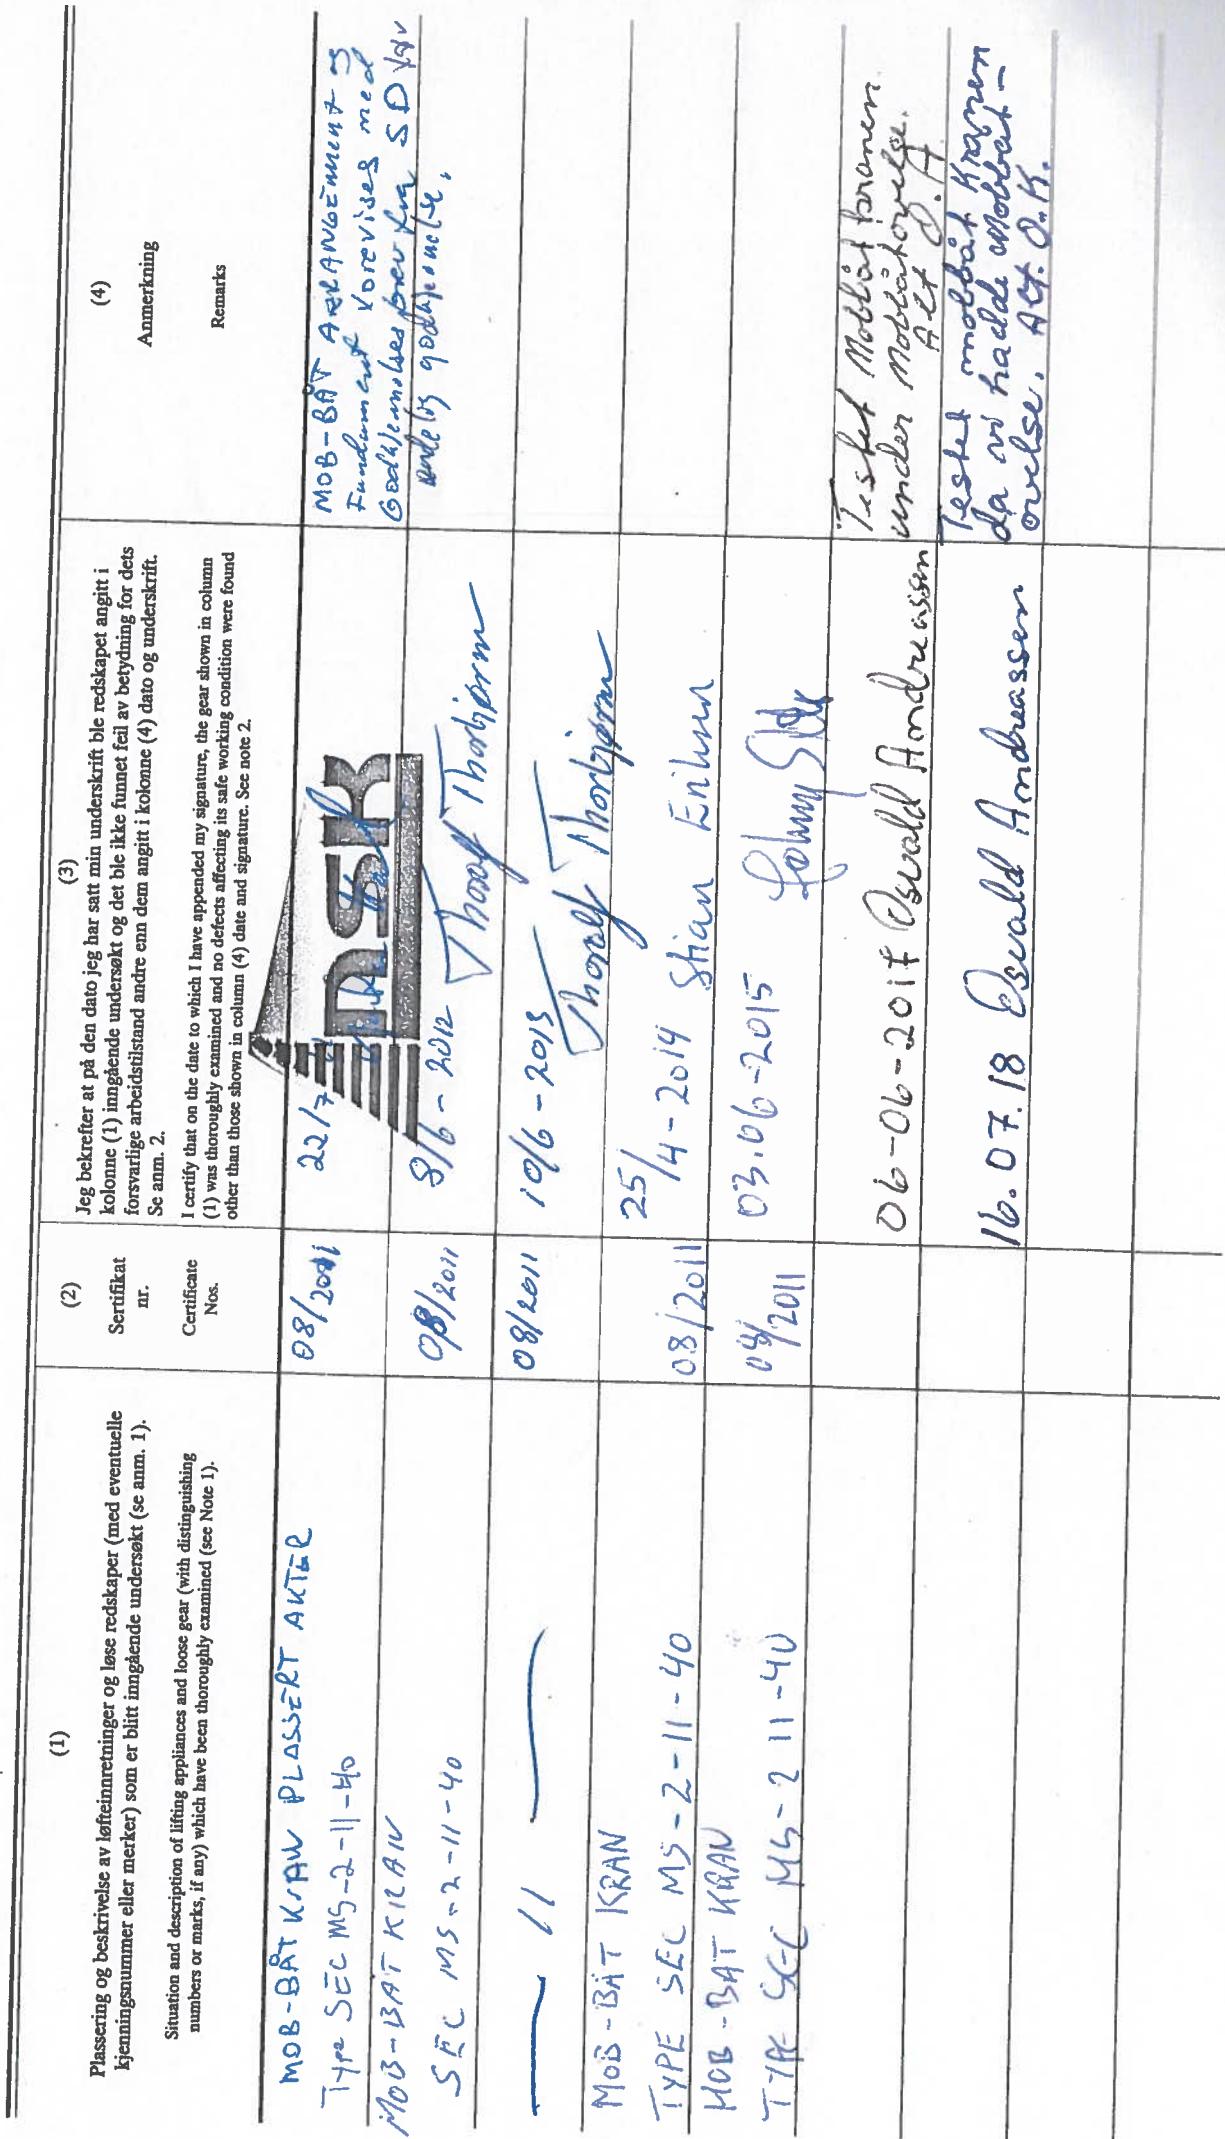 (1)
Plassering og beskrivelse av løfteinnretninger og løse redskaper (med eventuelle
kjenningsnummer eller merker) som er blitt inngående undersøkt (se anm. 1).
Situation and description of lifting appliances and loose gear (with distinguishing
numbers or marks, if any) which have been thoroughly examined (see Note 1).
(2)
Sertifikat
nr.
Certificate
Nos.
(3)
Jeg bekrefter at på den dato jeg har satt min underskrift ble redskapet angitt i
kolonne (1) inngående undersøkt og det ble ikke funnet feil av betydning for dets
forsvarlige arbeidstilstand andre enn dem angitt i kolonne (4) dato og underskrift.
Se anm. 2.
I certify that on the date to which I have appended my signature, the gear shown in column
(1) was thoroughly examined and no defects affecting its safe working condition were found
other than those shown in column (4) date and signature. See note 2.
(4)
Anmerkning
Remarks
MOB-BÅT KRAN PLASSERT AKTER
Type SEC MS-2-11-40
08/2011
22/7
nsk
MOB-BÅT ARRANGEMENT og
Fundament forevises med
Godkjennelsesbrev fra SDir
endelig godkjennelse.
MOB-BÅT KRAN
SEC MS-2-11-40
08/2011
8/6-2012 Thoralf Thorbjørn
— 11 —
08/2011
10/6-2013 Thoralf Thorbjørn
MOB-BÅT KRAN
TYPE SEC MS-2-11-40
08/2011
25/4-2014 Stian Eriksen
MOB-BÅT KRAN
TYPE SEC MS-2 11-40
08/2011
03.06-2015
06-06-2017 Osvald Andreassen
Testet Mobbåt kranen
under Mobbåtøvelse.
Alt O.K
16.07.18 Osvald Andreassen
Testet mobbåt Kranen
da vi hadde Mobbåt-
øvelse. Alt. O.K.